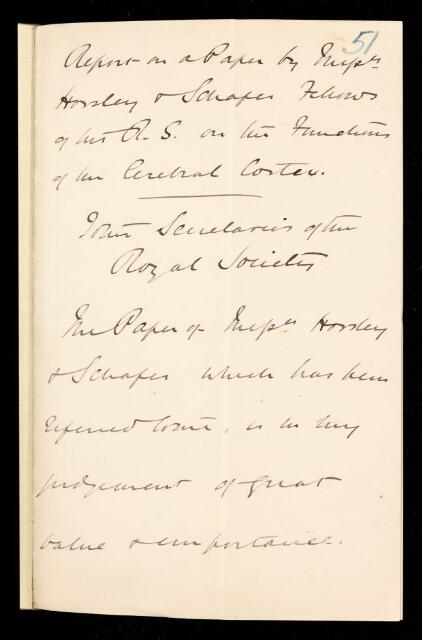 51
Report on a Paper by Mess^rs
Horsley & Schafer Fellows
of the R. S. on the Functions
of the Cerebral Cortex.
To the Secretaries of the
Royal Society
The Paper of Mess^rs Horsley
& Schafer which has been
referred to me, is in my
judgement of great
value & importance.